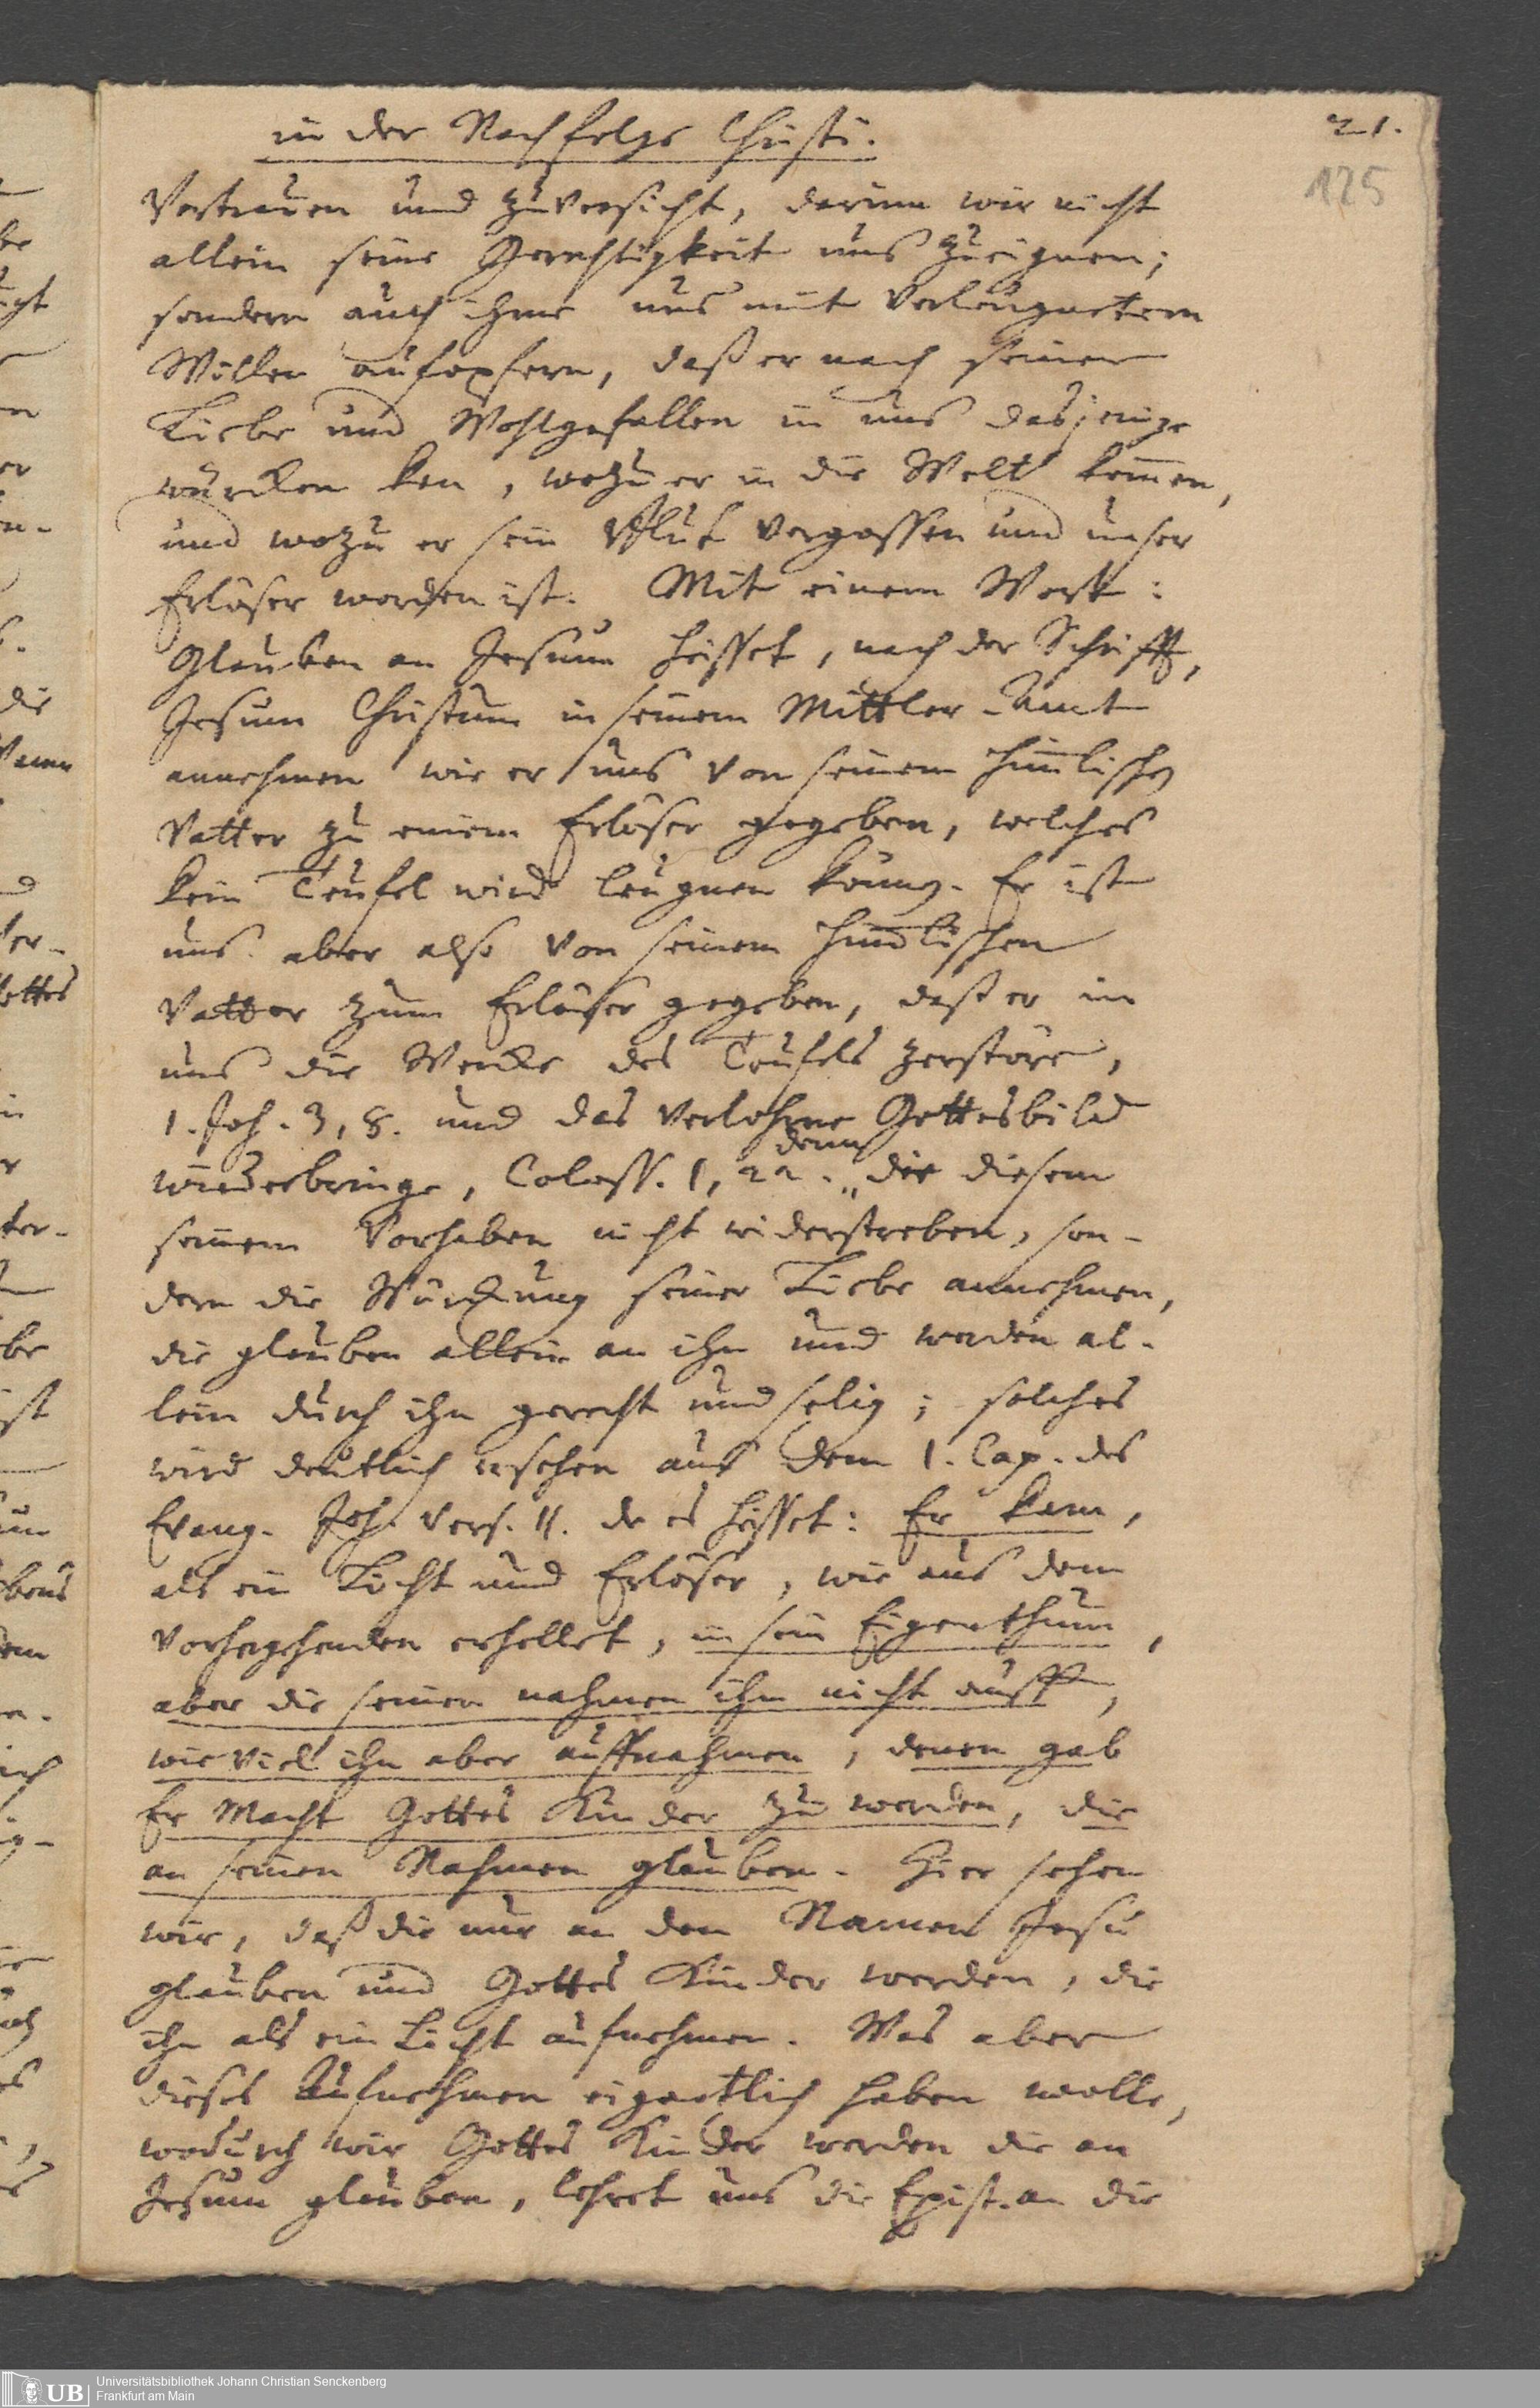 in der Nachfolge Christi.
21.
125
Vertrauen und Zuversicht, darinn wir nicht
allein seine Gerechtigkeit uns zueignen;
sondern auch ihme uns mit verleugnetem
Willen aufopfern, daß er nach seiner
Liebe und Wohlgefallen in uns dasjenige
würcken kan, wozu er in die Welt kom̄en,
und wozu er sein Blut vergossen und unser
Erlöser worden ist. Mit einem Wort:
Glauben an Jesum heisset, nach der Schrifft,
Jesum Christum in seinem Mittler-Amt
annehmen wie er uns von seinem him̄lischen
Vatter zu einem Erlöser gegeben, welches
kein Teufel wird leugnen können. Er ist
uns aber also von seinem him̄lischen
Vatter zum Erlöser gegeben, daß er in
uns die Wercke des Teufels zerstöre,
1. Joh. 3, 8. und das verlohrne Gottesbild
wiederbringe, Coloss. 1, 22. denn die diesem
seinem Vorhaben nicht widerstreben, son-
dern die Würckung seiner Liebe annehmen,
die glauben allein an ihn und werden al-
lein durch ihn gerecht und selig; solches
wird deutlich ersehen aus dem 1. Cap. des
Evang. Joh. vers. 11. da es heisset: Er kam,
als ein Licht und Erlöser, wie aus dem
vorhergehenden erhellet, in sein Eigenthum,
aber die seinen nahmen ihn nicht auff,
wie viel ihn aber auffnahmen, denen gab
Er Macht Gottes Kinder zu werden, die
an seinen Nahmen glauben. Hier sehen
wir, daß die nur an den Namen Jesu
glauben und Gottes Kinder werden, die
ihn als ein Licht aufnehmen. Was aber
dieses Aufnehmen eigentlich haben wolle,
wodurch wir Gottes Kinder werden die an
Jesum glauben, lehret uns die Epist. an die
UB
Universitätsbibliothek Johann Christian Senckenberg
Frankfurt am Main